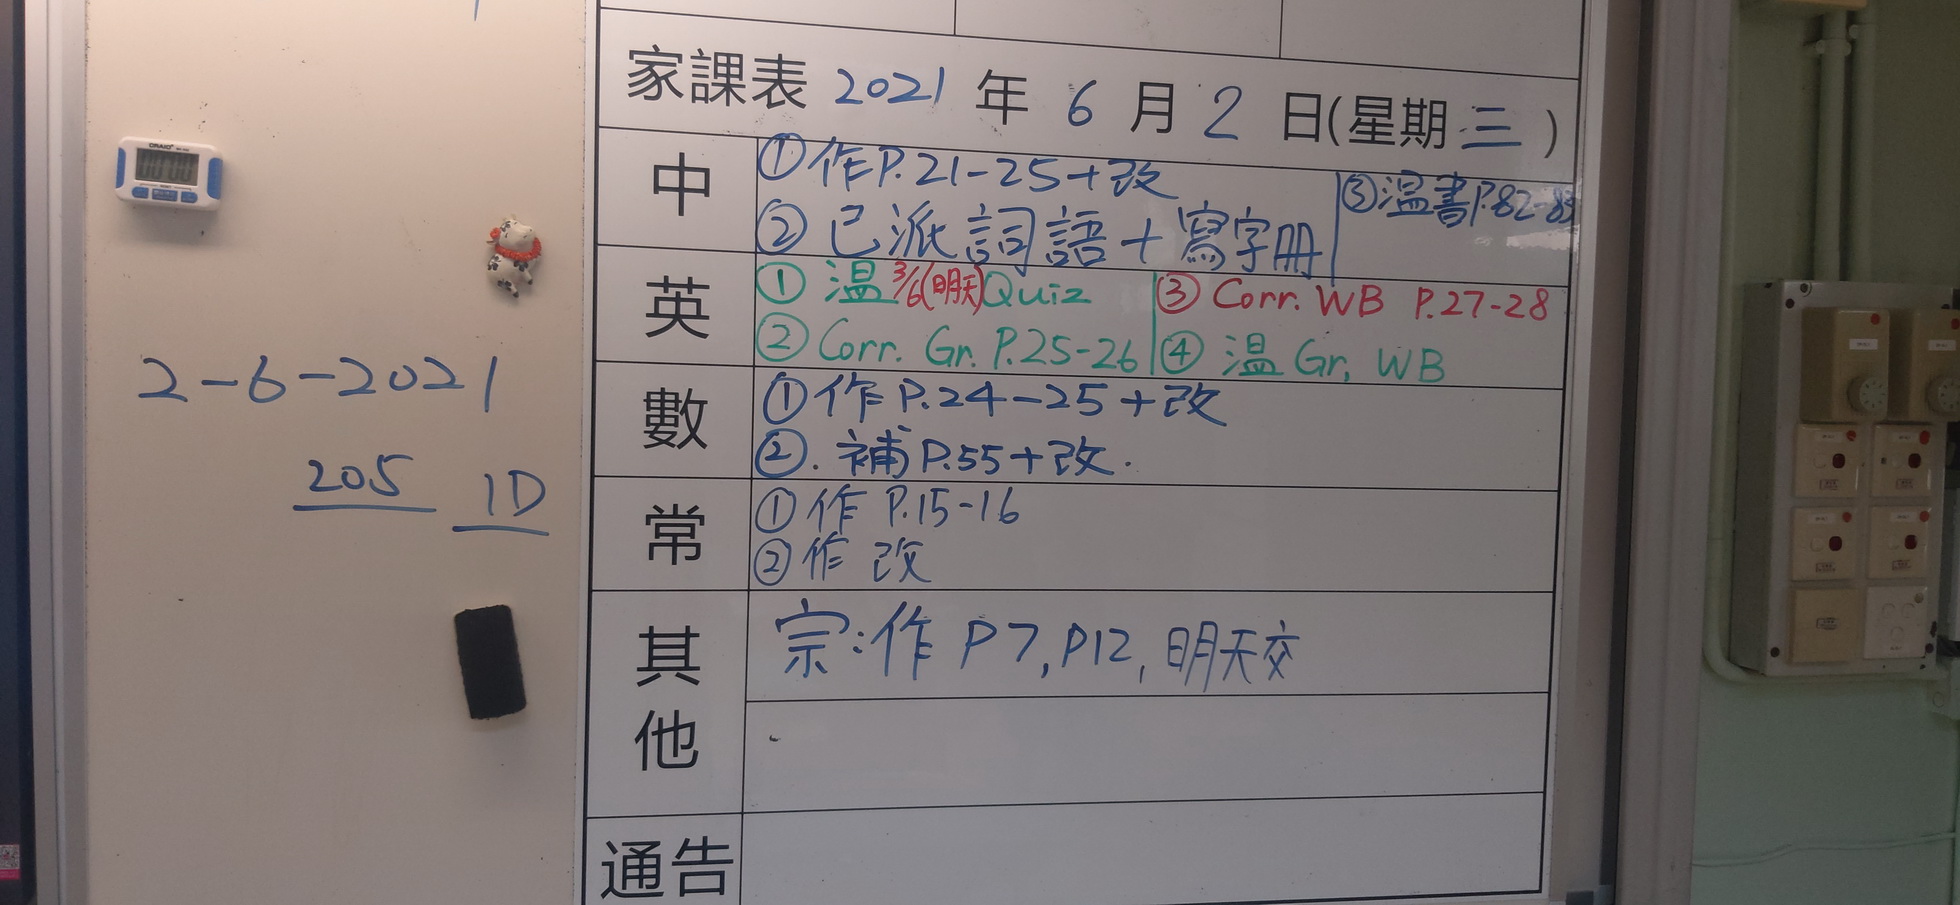 家課表 2021 年 6 月 2 日(星期 三 )
中
① 作P.21-25+改
② 已派詞語+寫字冊
③ 温書P.82-85
英
① 温 3/6(明天)Quiz
② Corr. Gr. P.25-26
③ Corr. WB P.27-28
④ 温 Gr, WB
數
① 作 P.24-25+改
②. 補P.55+改.
常
① 作 P.15-16
② 作 改
其他
宗:作 P7, P12, 明天交
通告
2-6-2021
205 1D
00 00